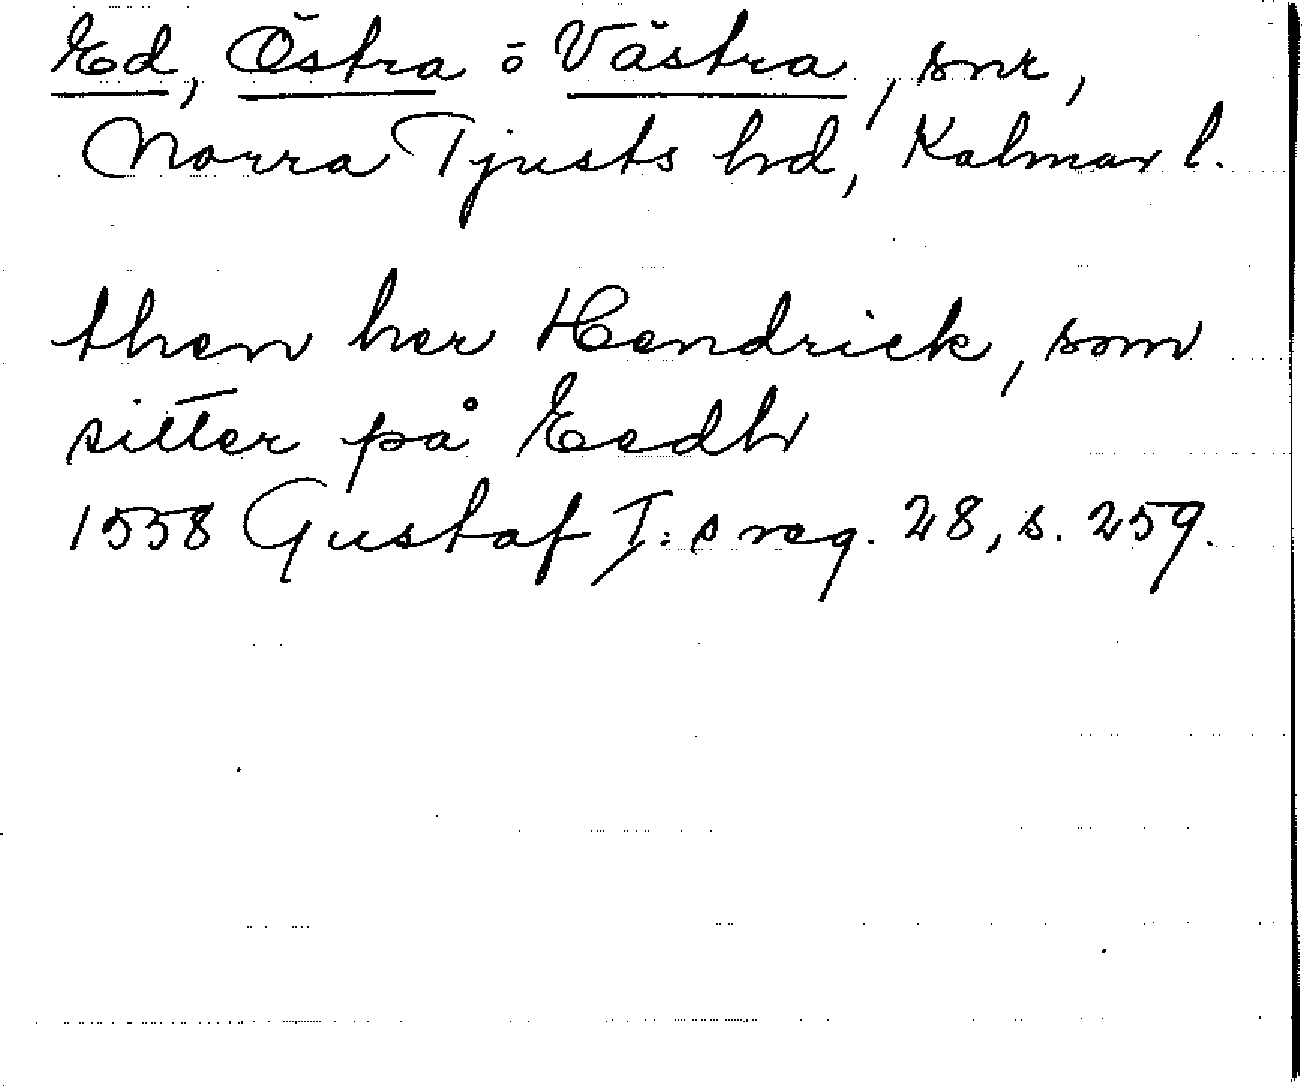 Ed, Östra o Västra, snr,
Norra Tjusts hd, Kalmar l.
then her Hendrick, som
sitter på Eedh
1558 Gustaf I:s reg. 28, s. 259.